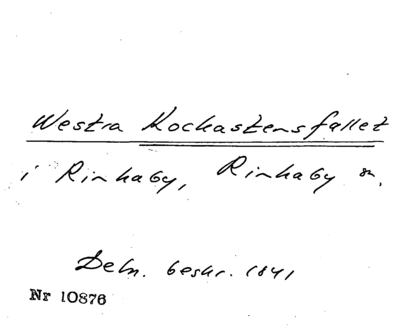 Westra Kockastensfallet
i Rinkaby, Rinkaby sn.
Deln. beskr. 1841
Nr 10876